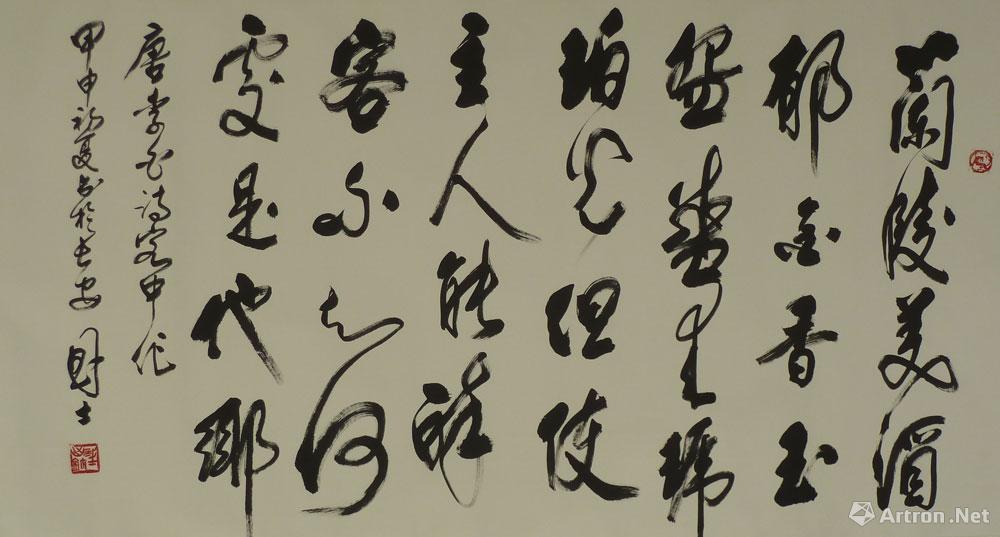 蘭陵美酒
郁金香玉
盌盛来琥
珀光但使
主人能醉
客不知何
處是他鄉
唐李白诗客中作
甲申初夏书於长安
Artron.Net